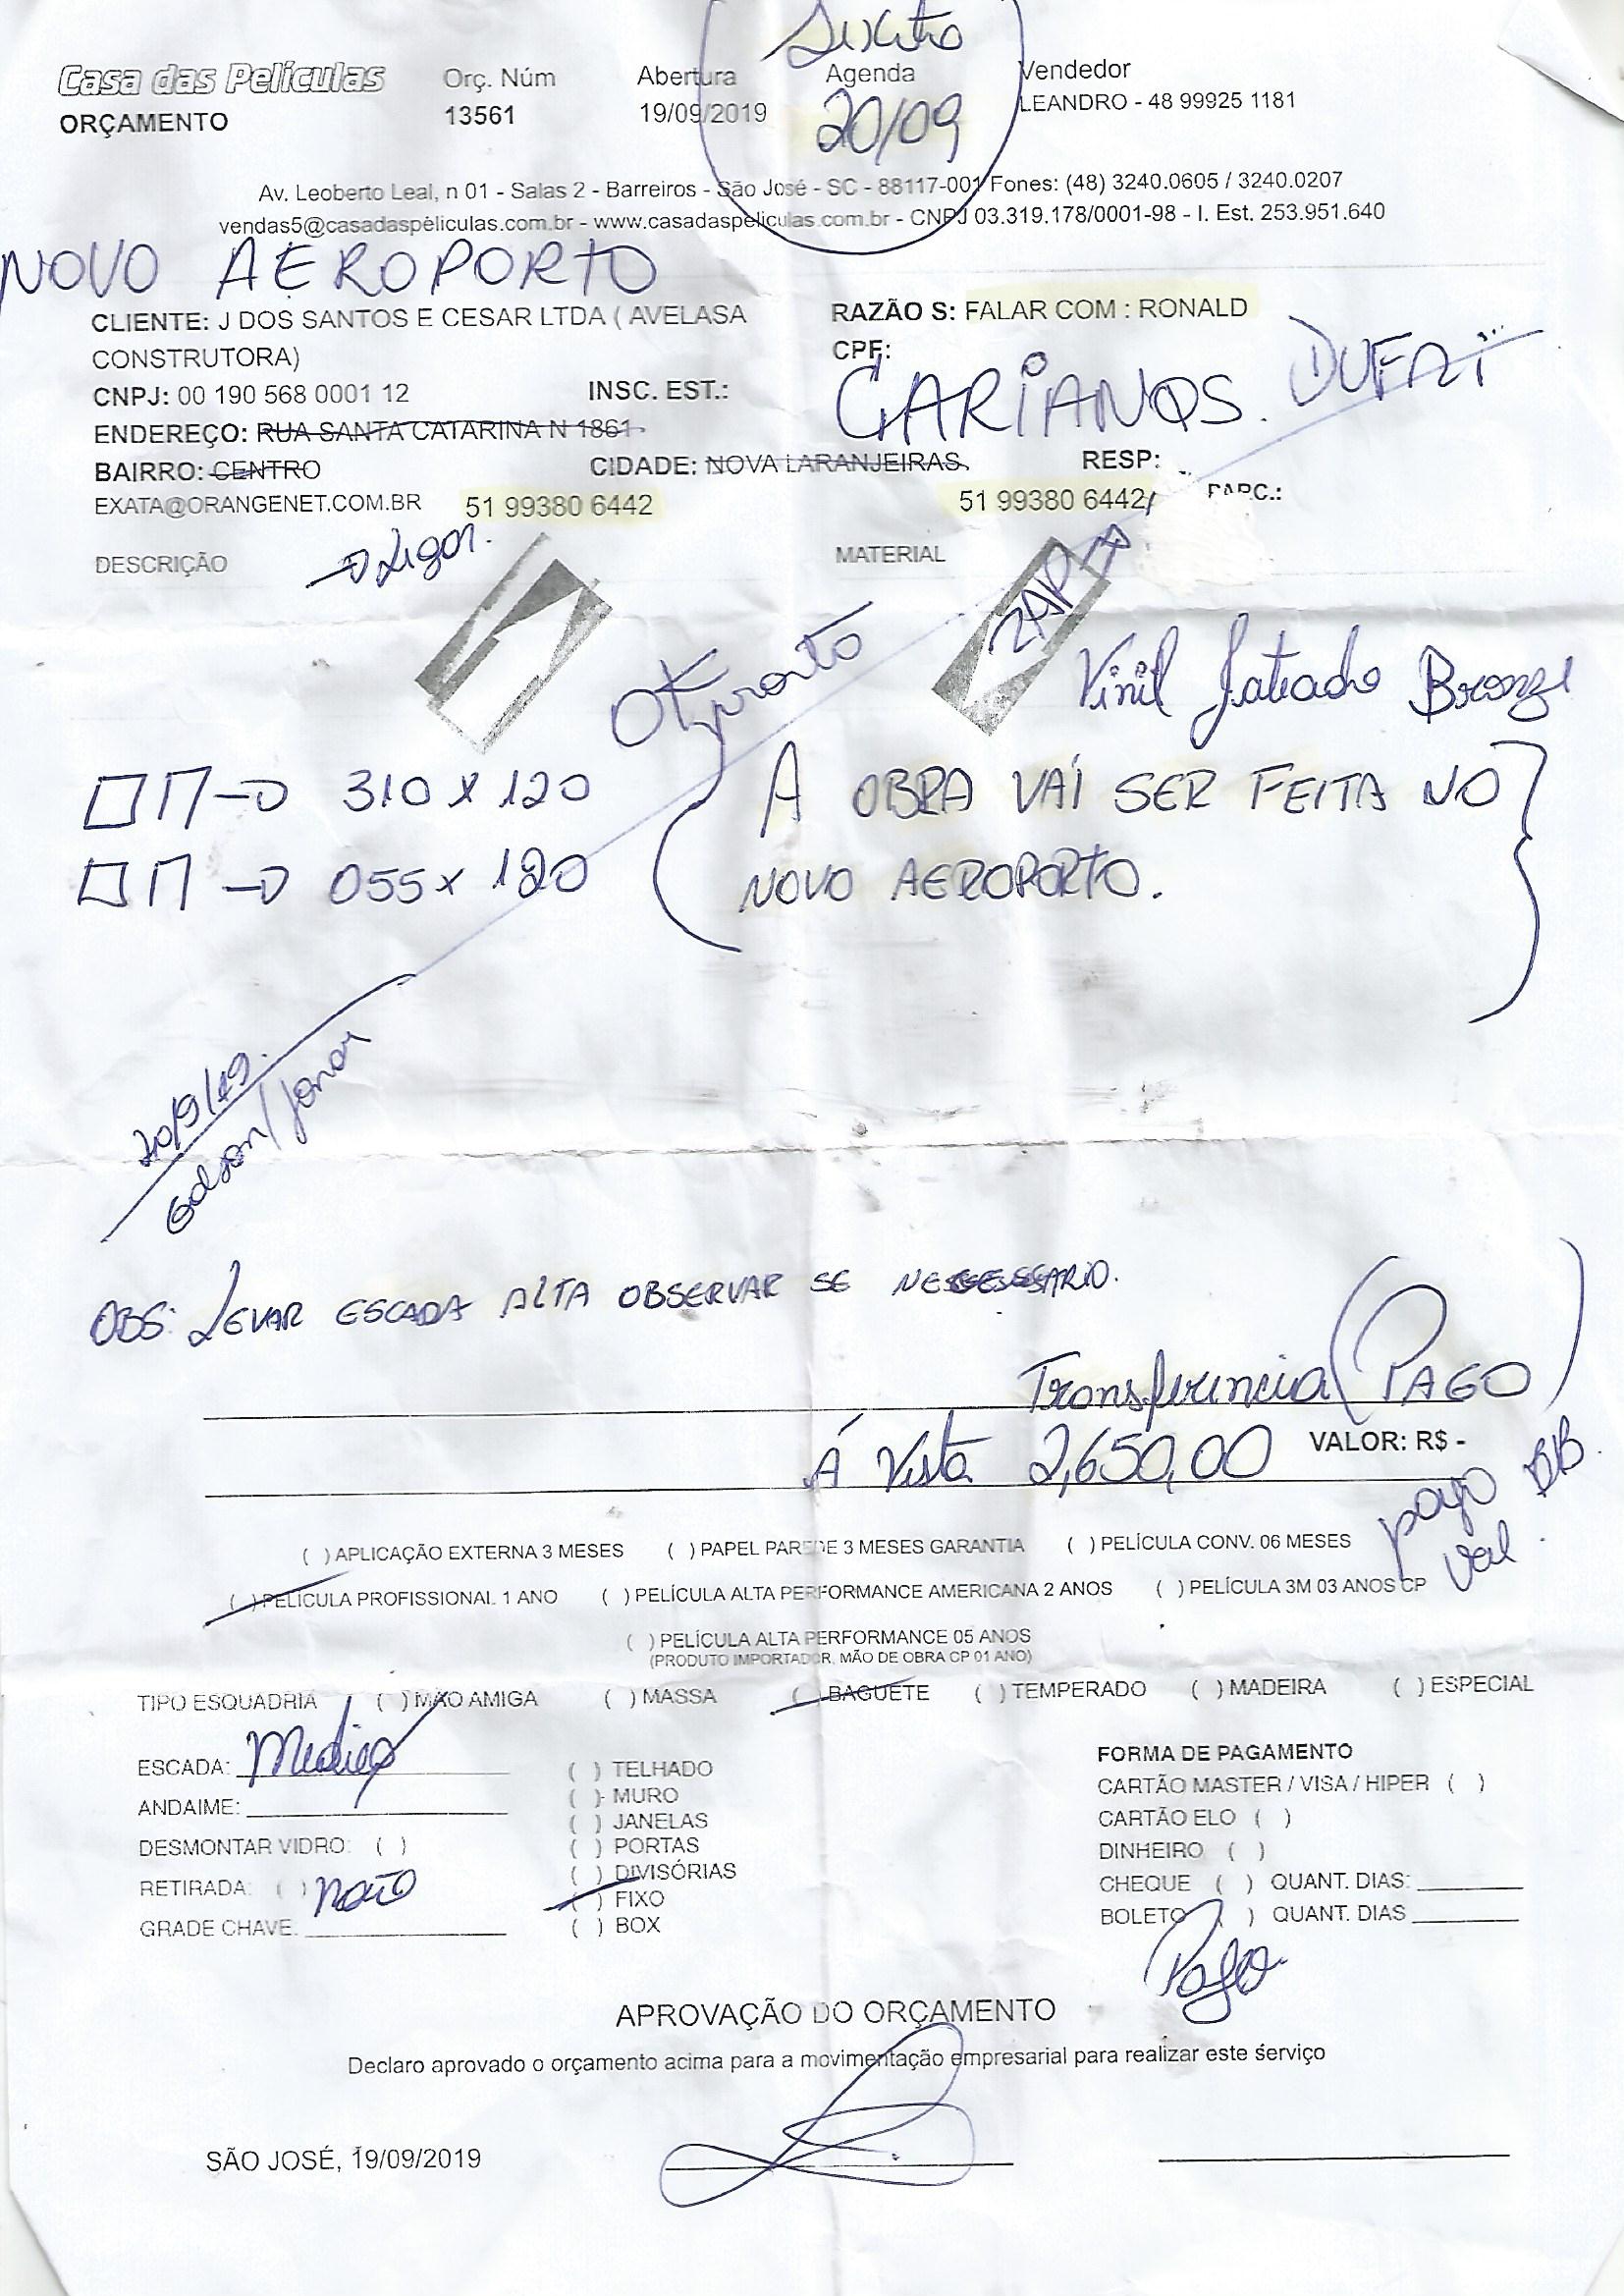 Sexta
Casa das Películas Orç. Núm Abertura Agenda Vendedor
ORÇAMENTO 13561 19/09/2019 20/09 LEANDRO - 48 99925 1181
Av. Leoberto Leal, n 01 - Salas 2 - Barreiros - São José - SC - 88117-001 Fones: (48) 3240.0605 / 3240.0207
vendas5@casadaspeliculas.com.br - www.casadaspeliculas.com.br - CNPJ 03.319.178/0001-98 - I. Est. 253.951.640
NOVO AEROPORTO
CLIENTE: J DOS SANTOS E CESAR LTDA ( AVELASA RAZÃO S: FALAR COM : RONALD
CONSTRUTORA) CPF:
CNPJ: 00 190 568 0001 12 INSC. EST.: CARIANOS.
ENDEREÇO: RUA SANTA CATARINA N 1861
BAIRRO: CENTRO CIDADE: NOVA LARANJEIRAS RESP:
EXATA@ORANGENET.COM.BR 51 99380 6442 51 99380 6442/ PARC.:
DESCRIÇÃO → Ligar. MATERIAL
OK pronto Vinil Jateado Bronze
→ 310 x 120 A OBRA VAI SER FEITA NO
→ 055 x 120 NOVO AEROPORTO.
20/9/19.
Edson/Jonar
OBS: LEVAR ESCADA ALTA OBSERVAR SE NESCESSARIO.
Transferencia (PAGO)
Á Vista 2,650,00 VALOR: R$ -
pago BB.
Val.
( ) APLICAÇÃO EXTERNA 3 MESES ( ) PAPEL PAREDE 3 MESES GARANTIA ( ) PELÍCULA CONV. 06 MESES
( ) PELÍCULA PROFISSIONAL 1 ANO ( ) PELÍCULA ALTA PERFORMANCE AMERICANA 2 ANOS ( ) PELÍCULA 3M 03 ANOS CP
( ) PELÍCULA ALTA PERFORMANCE 05 ANOS
(PRODUTO IMPORTADOR, MÃO DE OBRA CP 01 ANO)
TIPO ESQUADRIA ( ) MÃO AMIGA ( ) MASSA ( ) BAGUETE ( ) TEMPERADO ( ) MADEIRA ( ) ESPECIAL
ESCADA: ( ) TELHADO FORMA DE PAGAMENTO
ANDAIME: ( ) MURO CARTÃO MASTER / VISA / HIPER ( )
( ) JANELAS CARTÃO ELO ( )
DESMONTAR VIDRO: ( ) ( ) PORTAS DINHEIRO ( )
RETIRADA: ( ) não ( ) DIVISÓRIAS CHEQUE ( ) QUANT. DIAS:
( ) FIXO BOLETO ( ) QUANT. DIAS
GRADE CHAVE: ( ) BOX
Pago
APROVAÇÃO DO ORÇAMENTO
Declaro aprovado o orçamento acima para a movimentação empresarial para realizar este serviço
SÃO JOSÉ, 19/09/2019